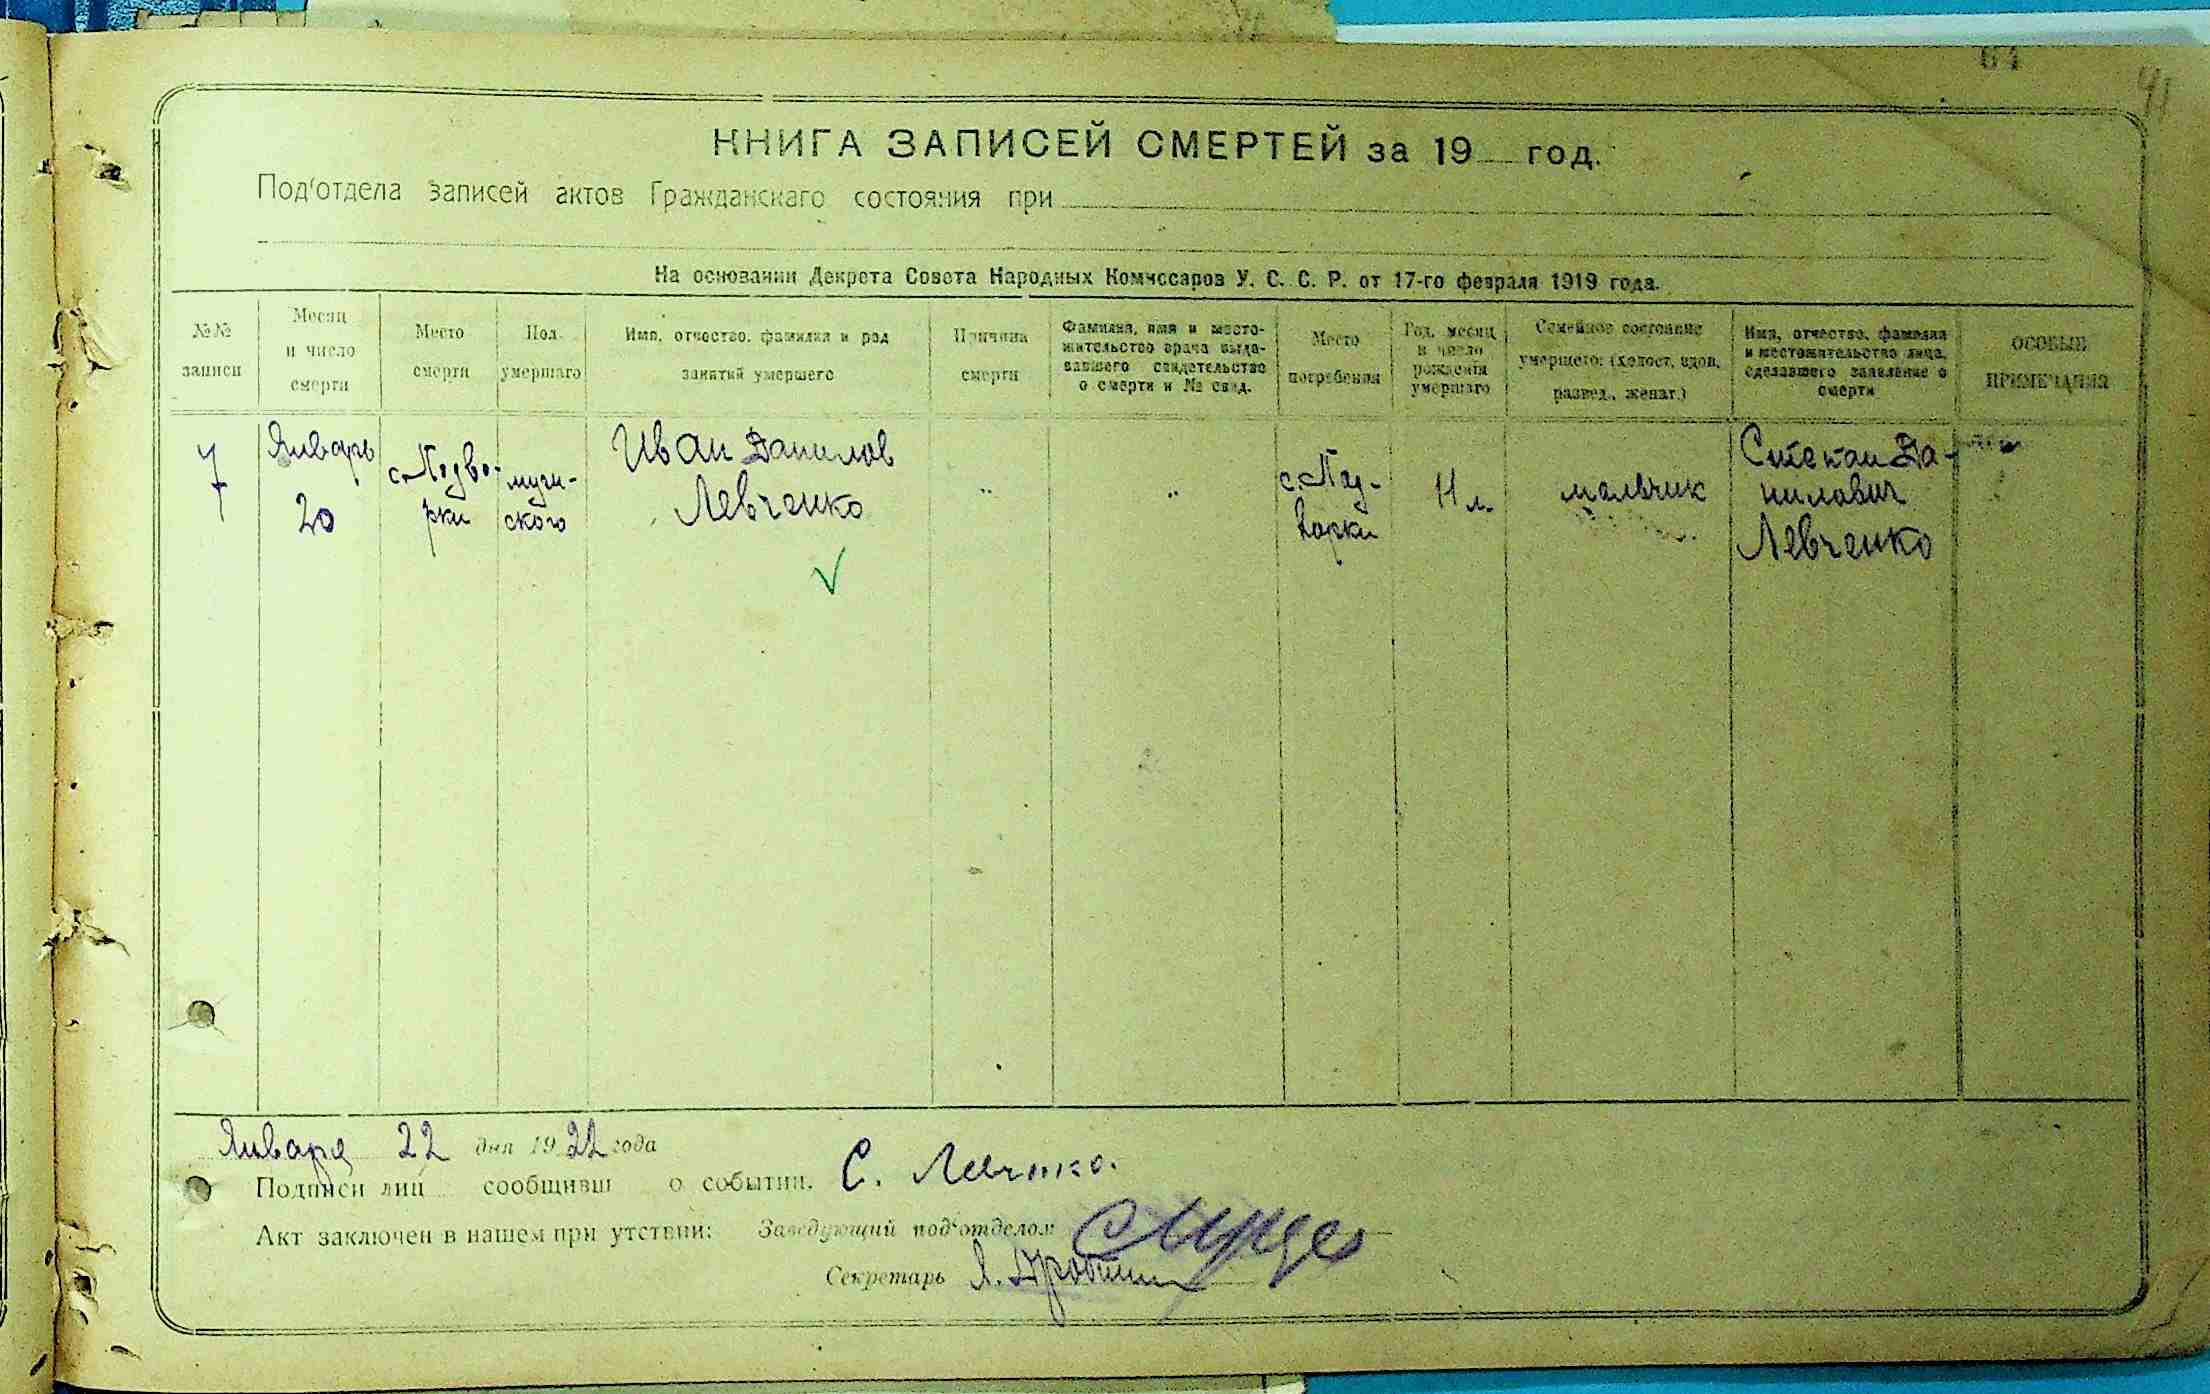 61
41
КНИГА ЗАПИСЕЙ СМЕРТЕЙ за 19 год.
Под'отдела записей актов Гражданскаго состояния при
На основании Декрета Совета Народных Комиссаров У. С. С. Р. от 17-го февраля 1919 года.
№№ записи
Месяц и число смерти
Место смерти
Пол умершаго
Имя, отчество, фамилия и род занятий умершего
Причина смерти
Фамилия, имя и место-
жительство врача выда-
вавшего свидетельство
о смерти и № свид.
Место погребения
Год, месяц и число рождения умершаго
Семейное состояние умершего: (холост, вдов, развед., женат.)
Имя, отчество, фамилия
и местожительство лица,
сделавшего заявление о
смерти
ОСОБЫЕ ПРИМЕЧАНИЯ
7
Январь
20
с. Подво-
рки
мужи-
ского
Иван Данилов
Левченко
"
"
с. Под-
ворки
11 л.
мальчик
Степан Да-
нилович
Левченко
Января 22 дня 1922 года
Подписи лиц сообщивш о событии. С. Левченко.
Акт заключен в нашем при утствии: Заведующий под'отделом
Секретарь